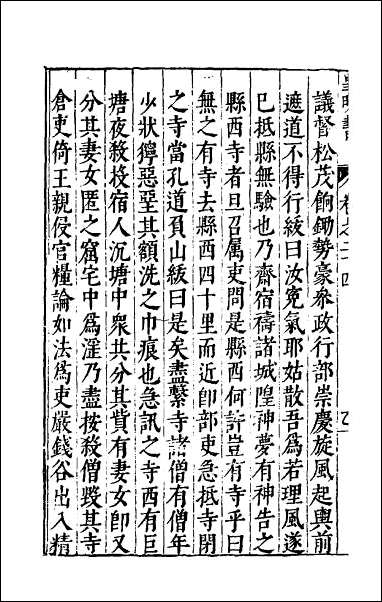 議督松茂餉鋤勢豪叅政行部崇慶旋風起輿前
遮道不得行紱曰汝寃氣耶姑散吾爲若理風遂
已抵縣無驗也乃齋宿禱諸城隍神夢有神告之
縣西寺者旦召属吏問是縣西何許豈有寺乎曰
無之有寺去縣西四十里而近卽部吏急抵寺閉
之寺當孔道負山紱曰是矣盡繫寺諸僧有僧年
少状獰惡堊其額洗之巾痕也急訊之寺西有巨
塘夜殺投宿人沉塘中衆共分其貲有妻女卽又
分其妻女匿之窟宅中爲淫乃盡按殺僧毀其寺
倉吏倚王親侵官糧論如法爲吏嚴錢谷出入精
皇明書
卷之二十四